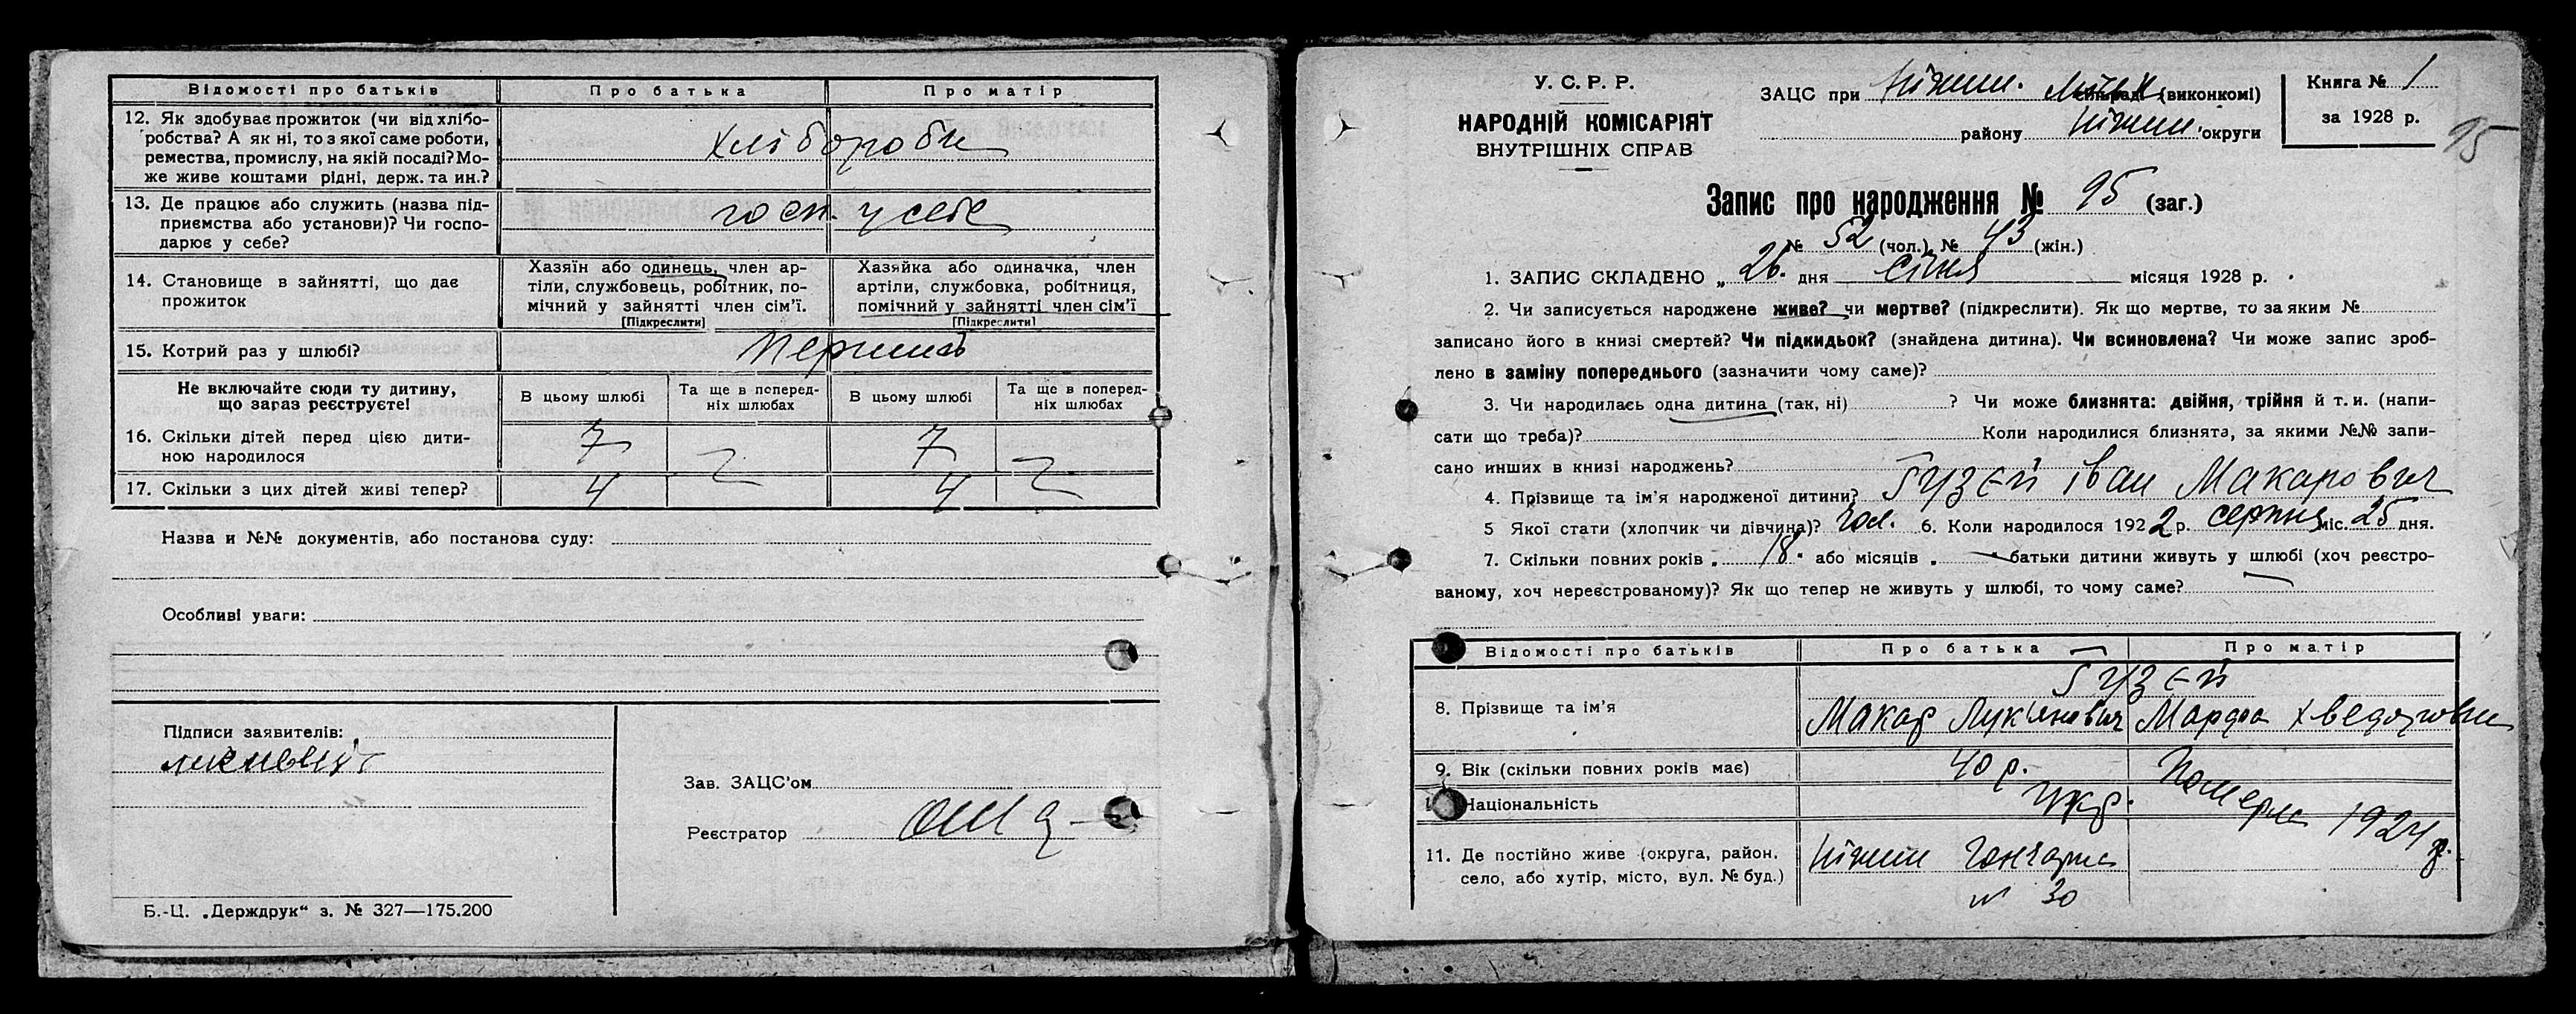 Відомості про батьків Про батька Про матір
12. Як здобуває прожиток (чи від хлібо-
робства? А як ні, то з якої саме роботи,
ремества, промислу, на якій посаді? Мо-
же живе коштами рідні, держ. та ин.?
хлібороби
13. Де працює або служить (назва під-
приємства або установи)? Чи госпо-
дарює у себе?
госп. у себе
14. Становище в зайнятті, що дає
прожиток
Хазяїн або одинець, член ар-
тіли, службовець, робітник, по-
мічний у зайнятті член сім'ї.
[Підкреслити]
Хазяйка або одиначка, член
артіли, службовка, робітниця,
помічний у зайнятті член сім'ї
[Підкреслити]
15. Котрий раз у шлюбі?
Не включайте сюди ту дитину,
що зараз реєструєте!
В цьому шлюбі Та ще в поперед-
ніх шлюбах В цьому шлюбі Та ще в поперед-
ніх шлюбах
16. Скільки дітей перед цією дити-
ною народилося
7 7
17. Скільки з цих дітей живі тепер? 4 4
Назва и №№ документів, або постанова суду:
Особливі уваги:
Підписи заявителів:
Зав. ЗАЦС'ом
Реєстратор
Б.-Ц. „Держдрук“ з. № 327—175.200
У. С. Р. Р.
НАРОДНІЙ КОМІСАРІЯТ
ВНУТРІШНІХ СПРАВ
ЗАЦС при Ніжин. сільраді (виконкомі)
району Ніжин. округи
Книга № 1
за 1928 р.
95
Запис про народження № 95 (заг.)
№ 52 (чол.) № 43 (жін.)
1. ЗАПИС СКЛАДЕНО „ 26. дня січня місяця 1928 р.
2. Чи записується народжене живе? чи мертве? (підкреслити). Як що мертве, то за яким №
записано його в книзі смертей? Чи підкидьок? (знайдена дитина). Чи всиновлена? Чи може запис зроб-
лено в заміну попереднього (зазначити чому саме)?
3. Чи народилась одна дитина (так, ні) ? Чи може близнята: двійня, трійня й т. и. (напи-
сати що треба)? Коли народилися близнята, за якими №№ запи-
сано инших в книзі народжень?
4. Прізвище та ім'я народженої дитини? Гузєй Іван Макарович
5 Якої стати (хлопчик чи дівчина)? чол. 6. Коли народилося 1922 р. серпня міс. 25 дня.
7. Скільки повних років „ 18 “ або місяців „ “ батьки дитини живуть у шлюбі (хоч реєстро-
ваному, хоч нереєстрованому)? Як що тепер не живуть у шлюбі, то чому саме?
Відомості про батьків Про батька Про матір
Гузєй
8. Прізвище та ім'я Макар Лук'янович Марфа Хведоровна
9. Вік (скільки повних років має) 40 р. Померла 1924 р.
10. Національність укр.
11. Де постійно живе (округа, район,
село, або хутір, місто, вул. № буд.)
Ніжин Гончарна
№ 30